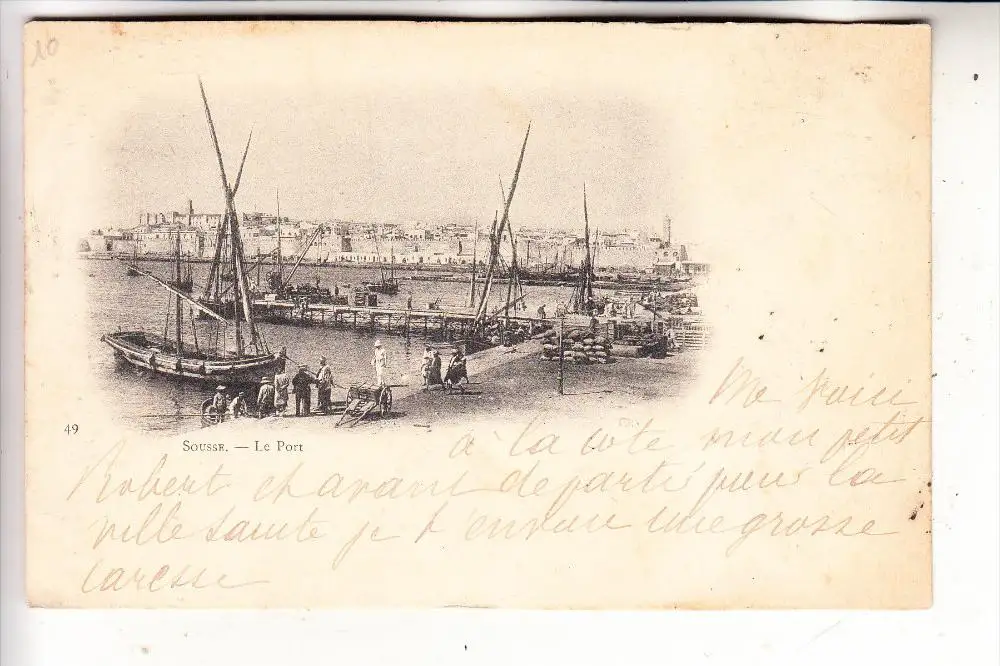 10
49
SOUSSE. — Le Port
Me Voici
à la côte mon petit
Robert et avant de partir pour la
ville Sainte je t'envoie une grosse
caresse